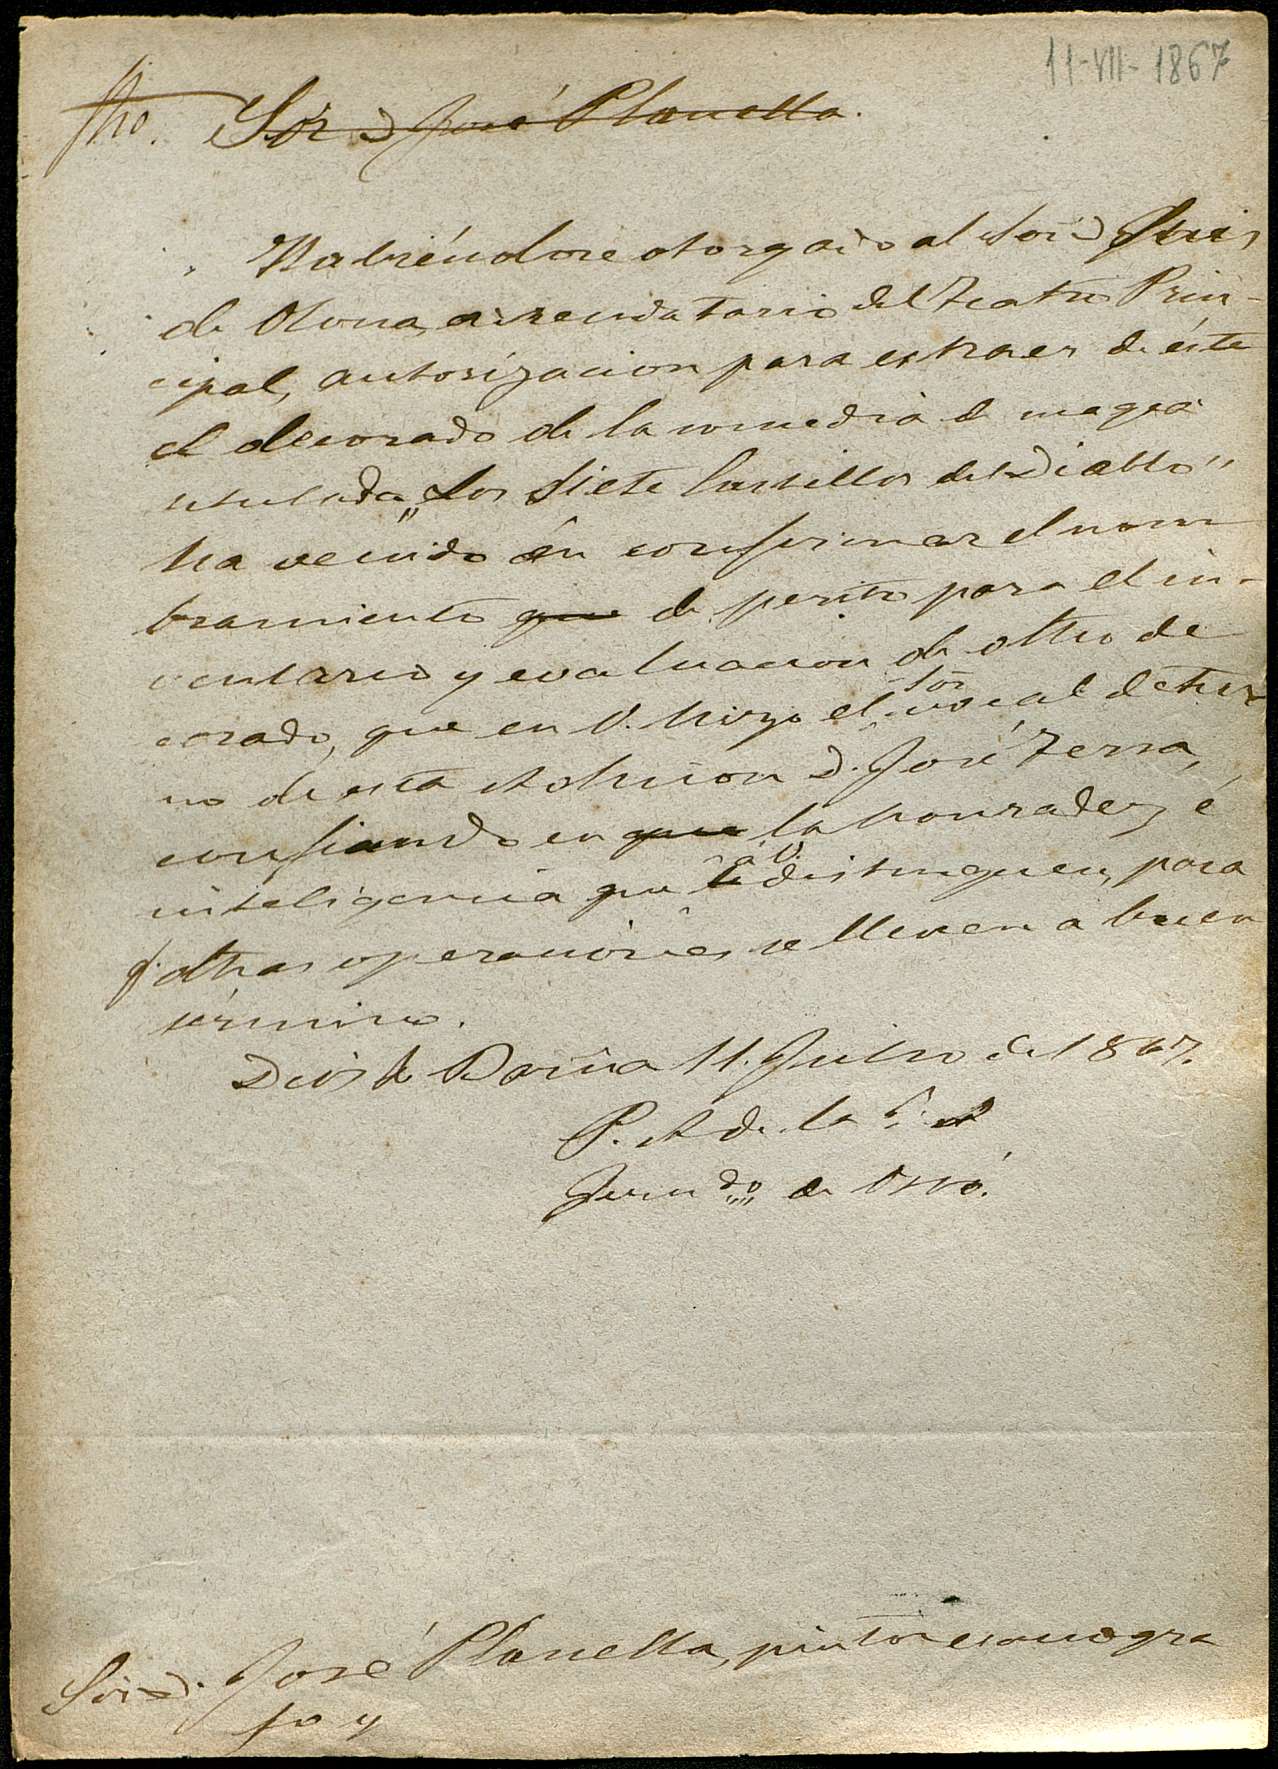 11-VII-1867
fho. Sor. D José Planella.
Habiéndose otorgado al Sor. D Luis
de Olona, arrendatario del Teatro Prin-
cipal, autorizacion para estraer de éste
el decorado de la comedia de magia
titulada „Los Siete Castillos del Diablo"
ha venido en confirmar el nom
bramiento que de perito para el in-
ventario y evaluacion de dho de
corado, que en V. hizo el Sor. vocal de tur
no de esta Admcion D. José Serra,
confiando en que la honradez é
inteligencia que le á V. distinguen, para
q. dhas operaciones se lleven a buen
término.
Dios &. Barna 11. Julio de 1867.
P. A de la J. A
José Planella, pintor escenogra
fo y